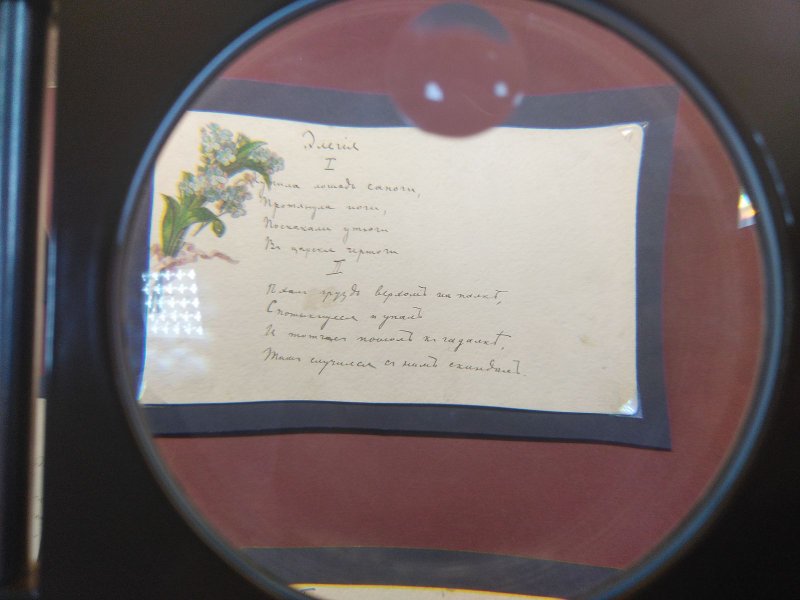 Элегія
I
лошадь сапоги,
Протянула ноги,
Поскакали утюги
Въ царскія чертоги
II
груздь верхомъ на палкѣ,
Споткнулся и упалъ
И тотчасъ пошолъ къ гадалкѣ,
Тамъ случился съ нимъ скандалъ.